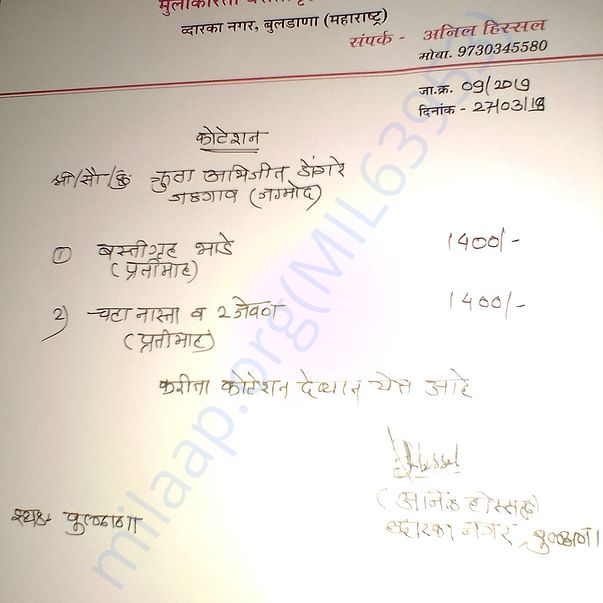 मुलांकरिता
व्दारका नगर, बुलडाणा (महाराष्ट्र)
संपर्क - अनिल हिस्सल
मोबा. 9730345580
जा.क्र. 09/2019
दिनांक - 27/03/19
कोटेशन
श्री/सौ/कु अभिजीत डोंगरे
जळगाव (जामोद)
① वस्तीगृह भाडे 1400/-
(प्रतीमाह)
2) चहा नास्ता व 2 जेवण 1400/-
(प्रतीमाह)
करीता कोटेशन देण्यात येत आहे
(अनिल हिस्सल)
व्दारका नगर, बुलडाणा
स्थळ बुलडाणा
milaap.org(MIL63953)